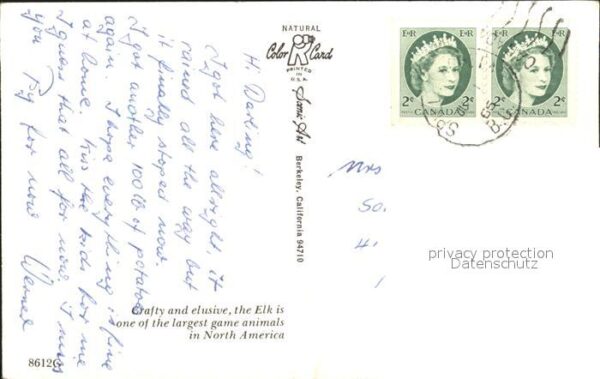 Hi Darling!
I got here allright, it
rained all the way but
it finally stoped now.
I got another 100 lb of potatoes
again. I hope everything is fine
at home. Kiss the kids for me
I guess that all for now. I miss
you By for now Werner
NATURAL
Color Card
PRINTED
IN
U.S.A.
Scenic Art
Berkeley, California 94710
E R
2¢ 2¢
CANADA
E R
2¢ 2¢
CANADA
Mrs
So.
41
1
privacy protection
Datenschutz
Crafty and elusive, the Elk is
one of the largest game animals
in North America
8612C